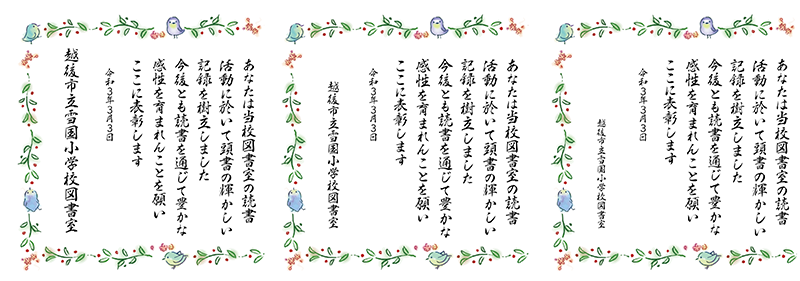 あなたは当校図書室の読書
活動に於いて頭書の輝かしい
記録を樹立しました
今後とも読書を通じて豊かな
感性を育まれんことを願い
ここに表彰します
令和3年3月3日
越後市立雪園小学校図書室
あなたは当校図書室の読書
活動に於いて頭書の輝かしい
記録を樹立しました
今後とも読書を通じて豊かな
感性を育まれんことを願い
ここに表彰します
令和3年3月3日
越後市立雪園小学校図書室
あなたは当校図書室の読書
活動に於いて頭書の輝かしい
記録を樹立しました
今後とも読書を通じて豊かな
感性を育まれんことを願い
ここに表彰します
令和3年3月3日
越後市立雪園小学校図書室